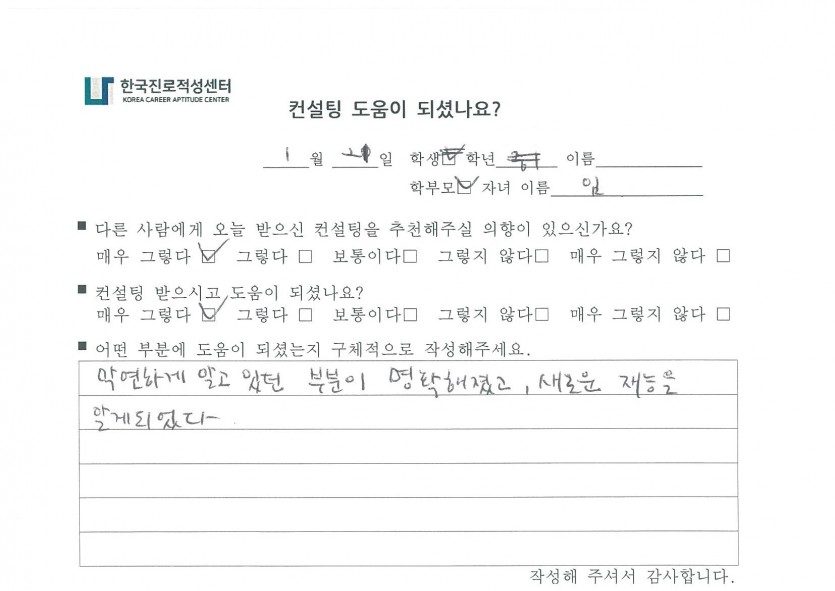 한국진로적성센터
KOREA CAREER APTITUDE CENTER
컨설팅 도움이 되셨나요?
1 월 일 학생☑ 학년 이름
학부모☑ 자녀 이름 임
■ 다른 사람에게 오늘 받으신 컨설팅을 추천해주실 의향이 있으신가요?
매우 그렇다 ☑ 그렇다 □ 보통이다□ 그렇지 않다□ 매우 그렇지 않다 □
■ 컨설팅 받으시고 도움이 되셨나요?
매우 그렇다 ☑ 그렇다 □ 보통이다□ 그렇지 않다□ 매우 그렇지 않다 □
■ 어떤 부분에 도움이 되셨는지 구체적으로 작성해주세요.
막연하게 알고 있던 부분이 명확해졌고, 새로운 재능을
알게되었다.
작성해 주셔서 감사합니다.